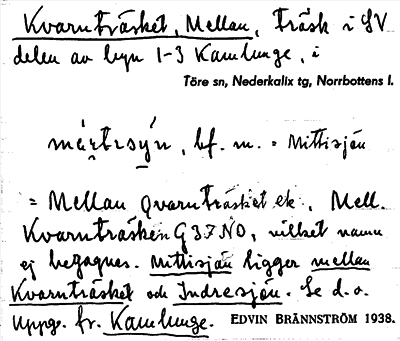 Kvarnträsket, Mellan, träsk i SV
delen av byn 1-3 Kamlunge, i
Töre sn, Nederkalix tg, Norrbottens l.
bf. m. = Mittisjön
= Mellan Qvarnträsket ek, Mell.
Kvarnträsken G 37 NO, vilket namn
ej begagnas. Mittisjön ligger mellan
Kvarnträsket och Indresjön. Se d. o.
Uppg. fr. Kamlunge. EDVIN BRÄNNSTRÖM 1938.